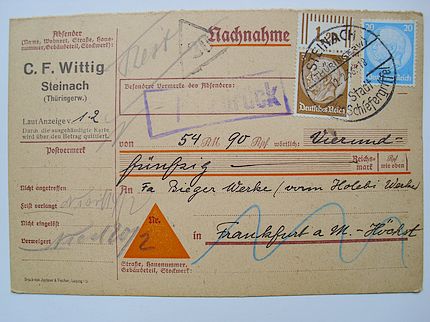 Absender
(Name, Wohnort, Straße, Haus-
nummer, Gebäudeteil, Stockwerk):
C. F. Wittig
Steinach
(Thüringerw.)
Laut Anzeige v. 1.2
Dann die ausgehändigte Karte
wird über den Betrag quittiert.
Postvermerk
Nicht angetroffen
Frist verlangt
Nicht eingelöst
Verweigert
Nachnahme
20
20
STEINACH
Stadt
Schiefergriffel
Deutsches Reich
Besondere Vermerke des Absenders:
Zurück
von 54 RM. 90 Rpf wörtlich: Vierund-
fünfzig Reichs-
mark Rpf
wie oben
An Fa Rieger Werke (vorm Holebi Werke
Nr.
2
in Frankfurt a M. - Höchst
Straße, Hausnummer,
Gebäudeteil, Stockwerk: